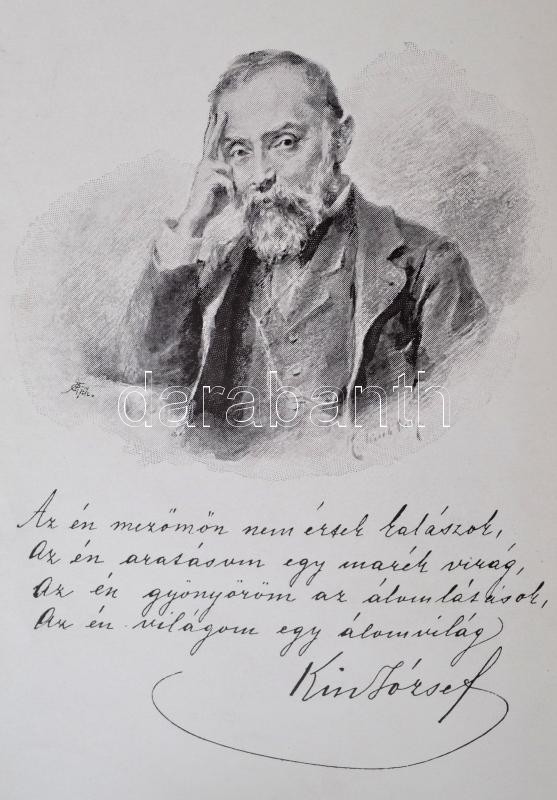 darabanth
Az én mezőmön nem értek kalászok,
Az én aratásom egy marék virág,
Az én gyönyöröm az álomlátások,
Az én világom egy álomvilág
Kiss József